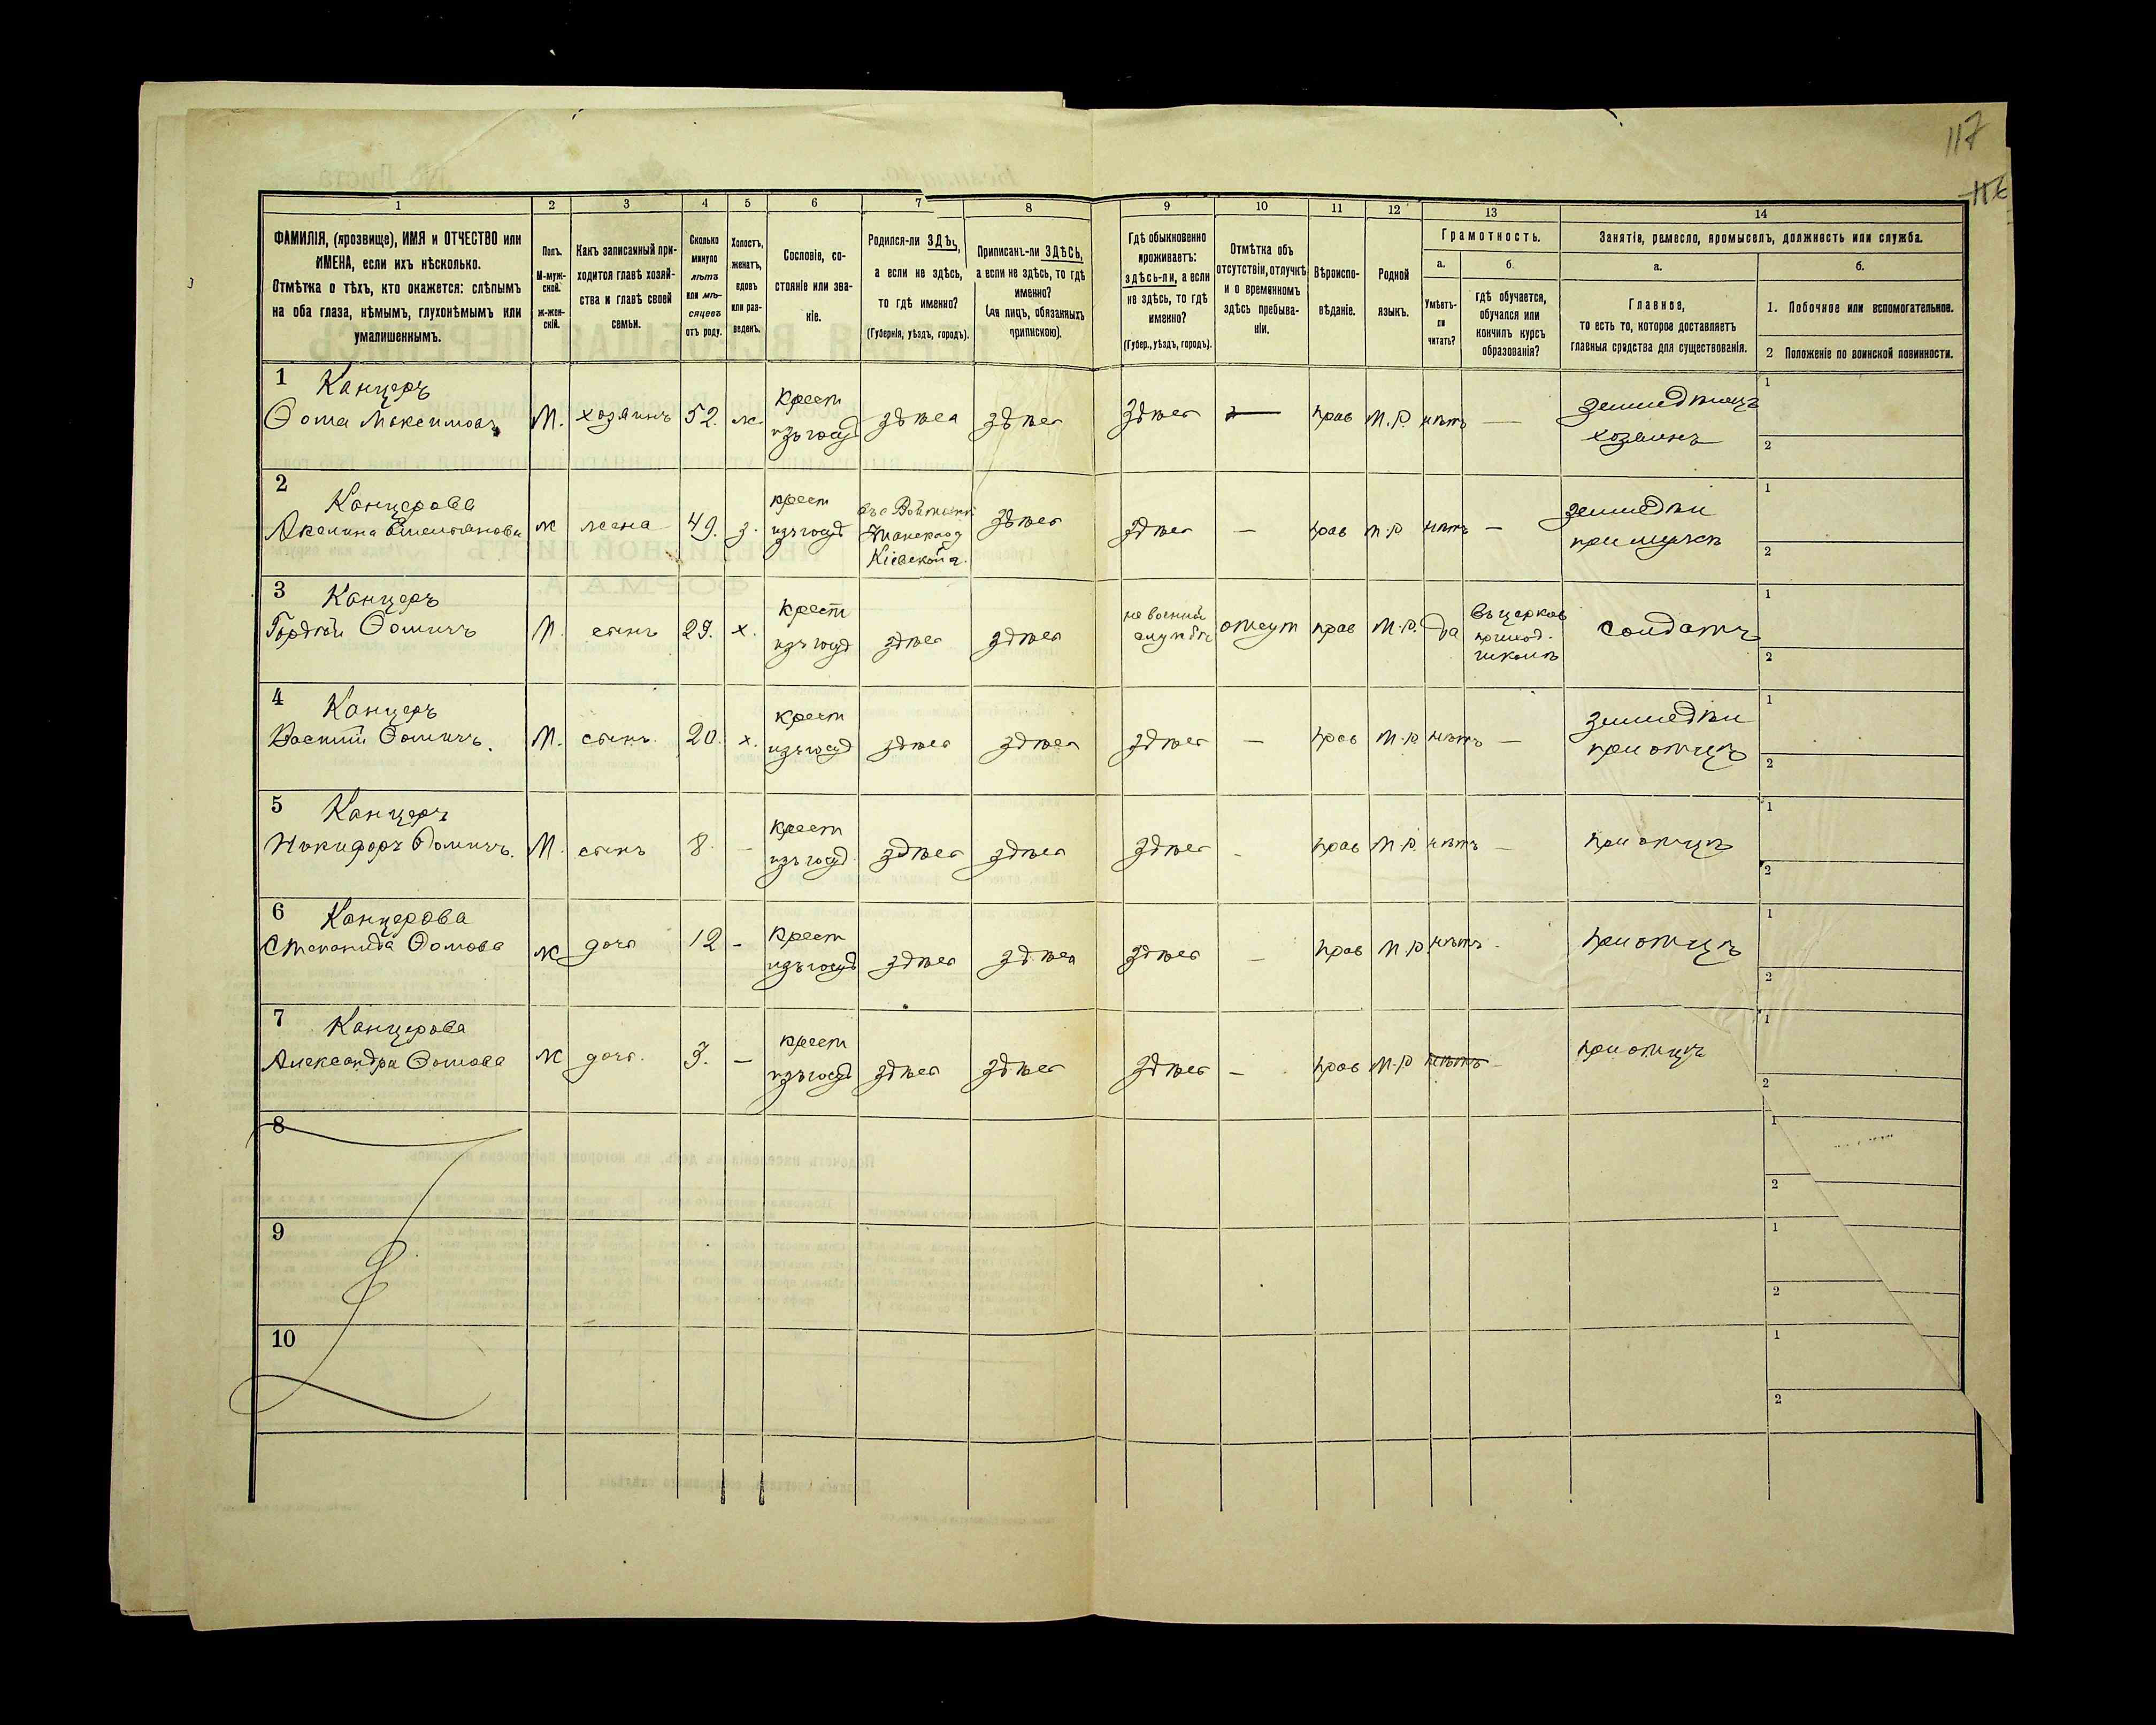 117
1 2 3 4 5 6 7 8 9 10 11 12 13 14
ФАМИЛІЯ, (прозвище), ИМЯ и ОТЧЕСТВО или
ИМЕНА, если ихъ нѣсколько.
Отмѣтка о тѣхъ, кто окажется: слѣпымъ
на оба глаза, нѣмымъ, глухонѣмымъ или
умалишеннымъ.
Полъ.
М-муж-
ской.
ж-жен-
скій.
Какъ записанный при-
ходится главѣ хозяй-
ства и главѣ своей
семьи.
Сколько
минуло
лѣтъ
или мѣ-
сяцевъ
отъ роду.
Холостъ,
женатъ,
вдовъ
или раз-
веденъ.
Сословіе, со-
стояніе или зва-
ніе.
Родился-ли ЗДѢСЬ,
а если не здѣсь,
то гдѣ именно?
(Губернія, уѣздъ, городъ).
Приписанъ-ли ЗДѢСЬ,
а если не здѣсь, то гдѣ
именно?
(для лицъ, обязанныхъ
припискою).
Гдѣ обыкновенно
проживаетъ:
здѣсь-ли, а если
не здѣсь, то гдѣ
именно?
(Губер., уѣздъ, городъ).
Отмѣтка объ
отсутствіи, отлучкѣ
и о временномъ
здѣсь пребыва-
ніи.
Вѣроиспо-
вѣданіе.
Родной
языкъ.
Грамотность.
а.
Умѣетъ-
ли
читать?
б.
гдѣ обучается,
обучался или
кончилъ курсъ
образованія?
Занятіе, ремесло, промыселъ, должность или служба.
а.
Главное,
то есть то, которое доставляетъ
главныя средства для существованія.
б.
1. Побочное или вспомогательное.
2 Положеніе по воинской повинности.
1 Канцеръ
Ѳома Максимовъ М. хозяинъ 52. ж. крест
изъ госуд здѣсь здѣсь здѣсь — прав М.Р. нѣтъ — земледѣлецъ
хозяинъ
1
2
2 Канцерова
Акилина Емельянова ж жена 49. з. крест
изъ госуд
Кіевской г.
здѣсь здѣсь — прав М.Р нѣтъ — земледѣл
при мужѣ
1
2
3 Канцеръ
Гордѣй Ѳомичъ М. сынъ 29. х. крест
изъ госуд здѣсь здѣсь
на военной
службѣ
отсут прав М.Р. да
въ церков
приход.
школѣ
солдатъ
1
2
4 Канцеръ
Василій Ѳомичъ. М. сынъ 20. х. крест
изъ госуд здѣсь здѣсь здѣсь — прав М.Р нѣтъ — земледѣл
при отцѣ
1
2
5 Канцеръ
Никифоръ Ѳомичъ. М. сынъ 8. - крест
изъ госуд. здѣсь здѣсь здѣсь - прав М.Р. нѣтъ — при отцѣ
1
2
6 Канцерова
Степанида Ѳомова ж дочь 12 - крест
изъ госуд здѣсь здѣсь здѣсь — прав М.Р. нѣтъ - при отцѣ
1
2
7 Канцерова
Александра Ѳомова ж дочь. 3. — крест
изъ госуд здѣсь здѣсь здѣсь — прав М.Р нѣтъ - при отцѣ
1
2
8
1
2
9
1
2
10
1
2